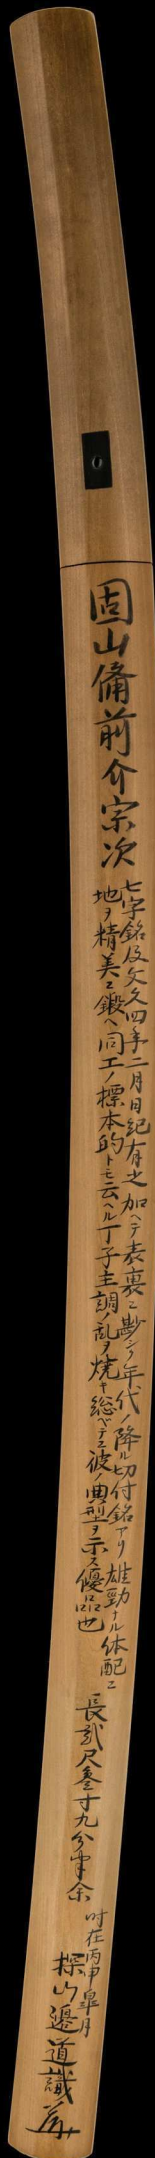 固山備前介宗次
七字銘及文久四年二月日紀有之加ヘテ表裏ニ尠シク年代ノ降ル切付銘アリ雄勁ナル体配ニ
地ヲ精美ニ鍛ヘ同工ノ標本的トモ云ヘル丁子主調ノ乱ヲ焼キ総ベテニ彼ノ典型ヲ示ス優品也
長弐尺参寸九分半余
時在丙申皐月
探山邉道識